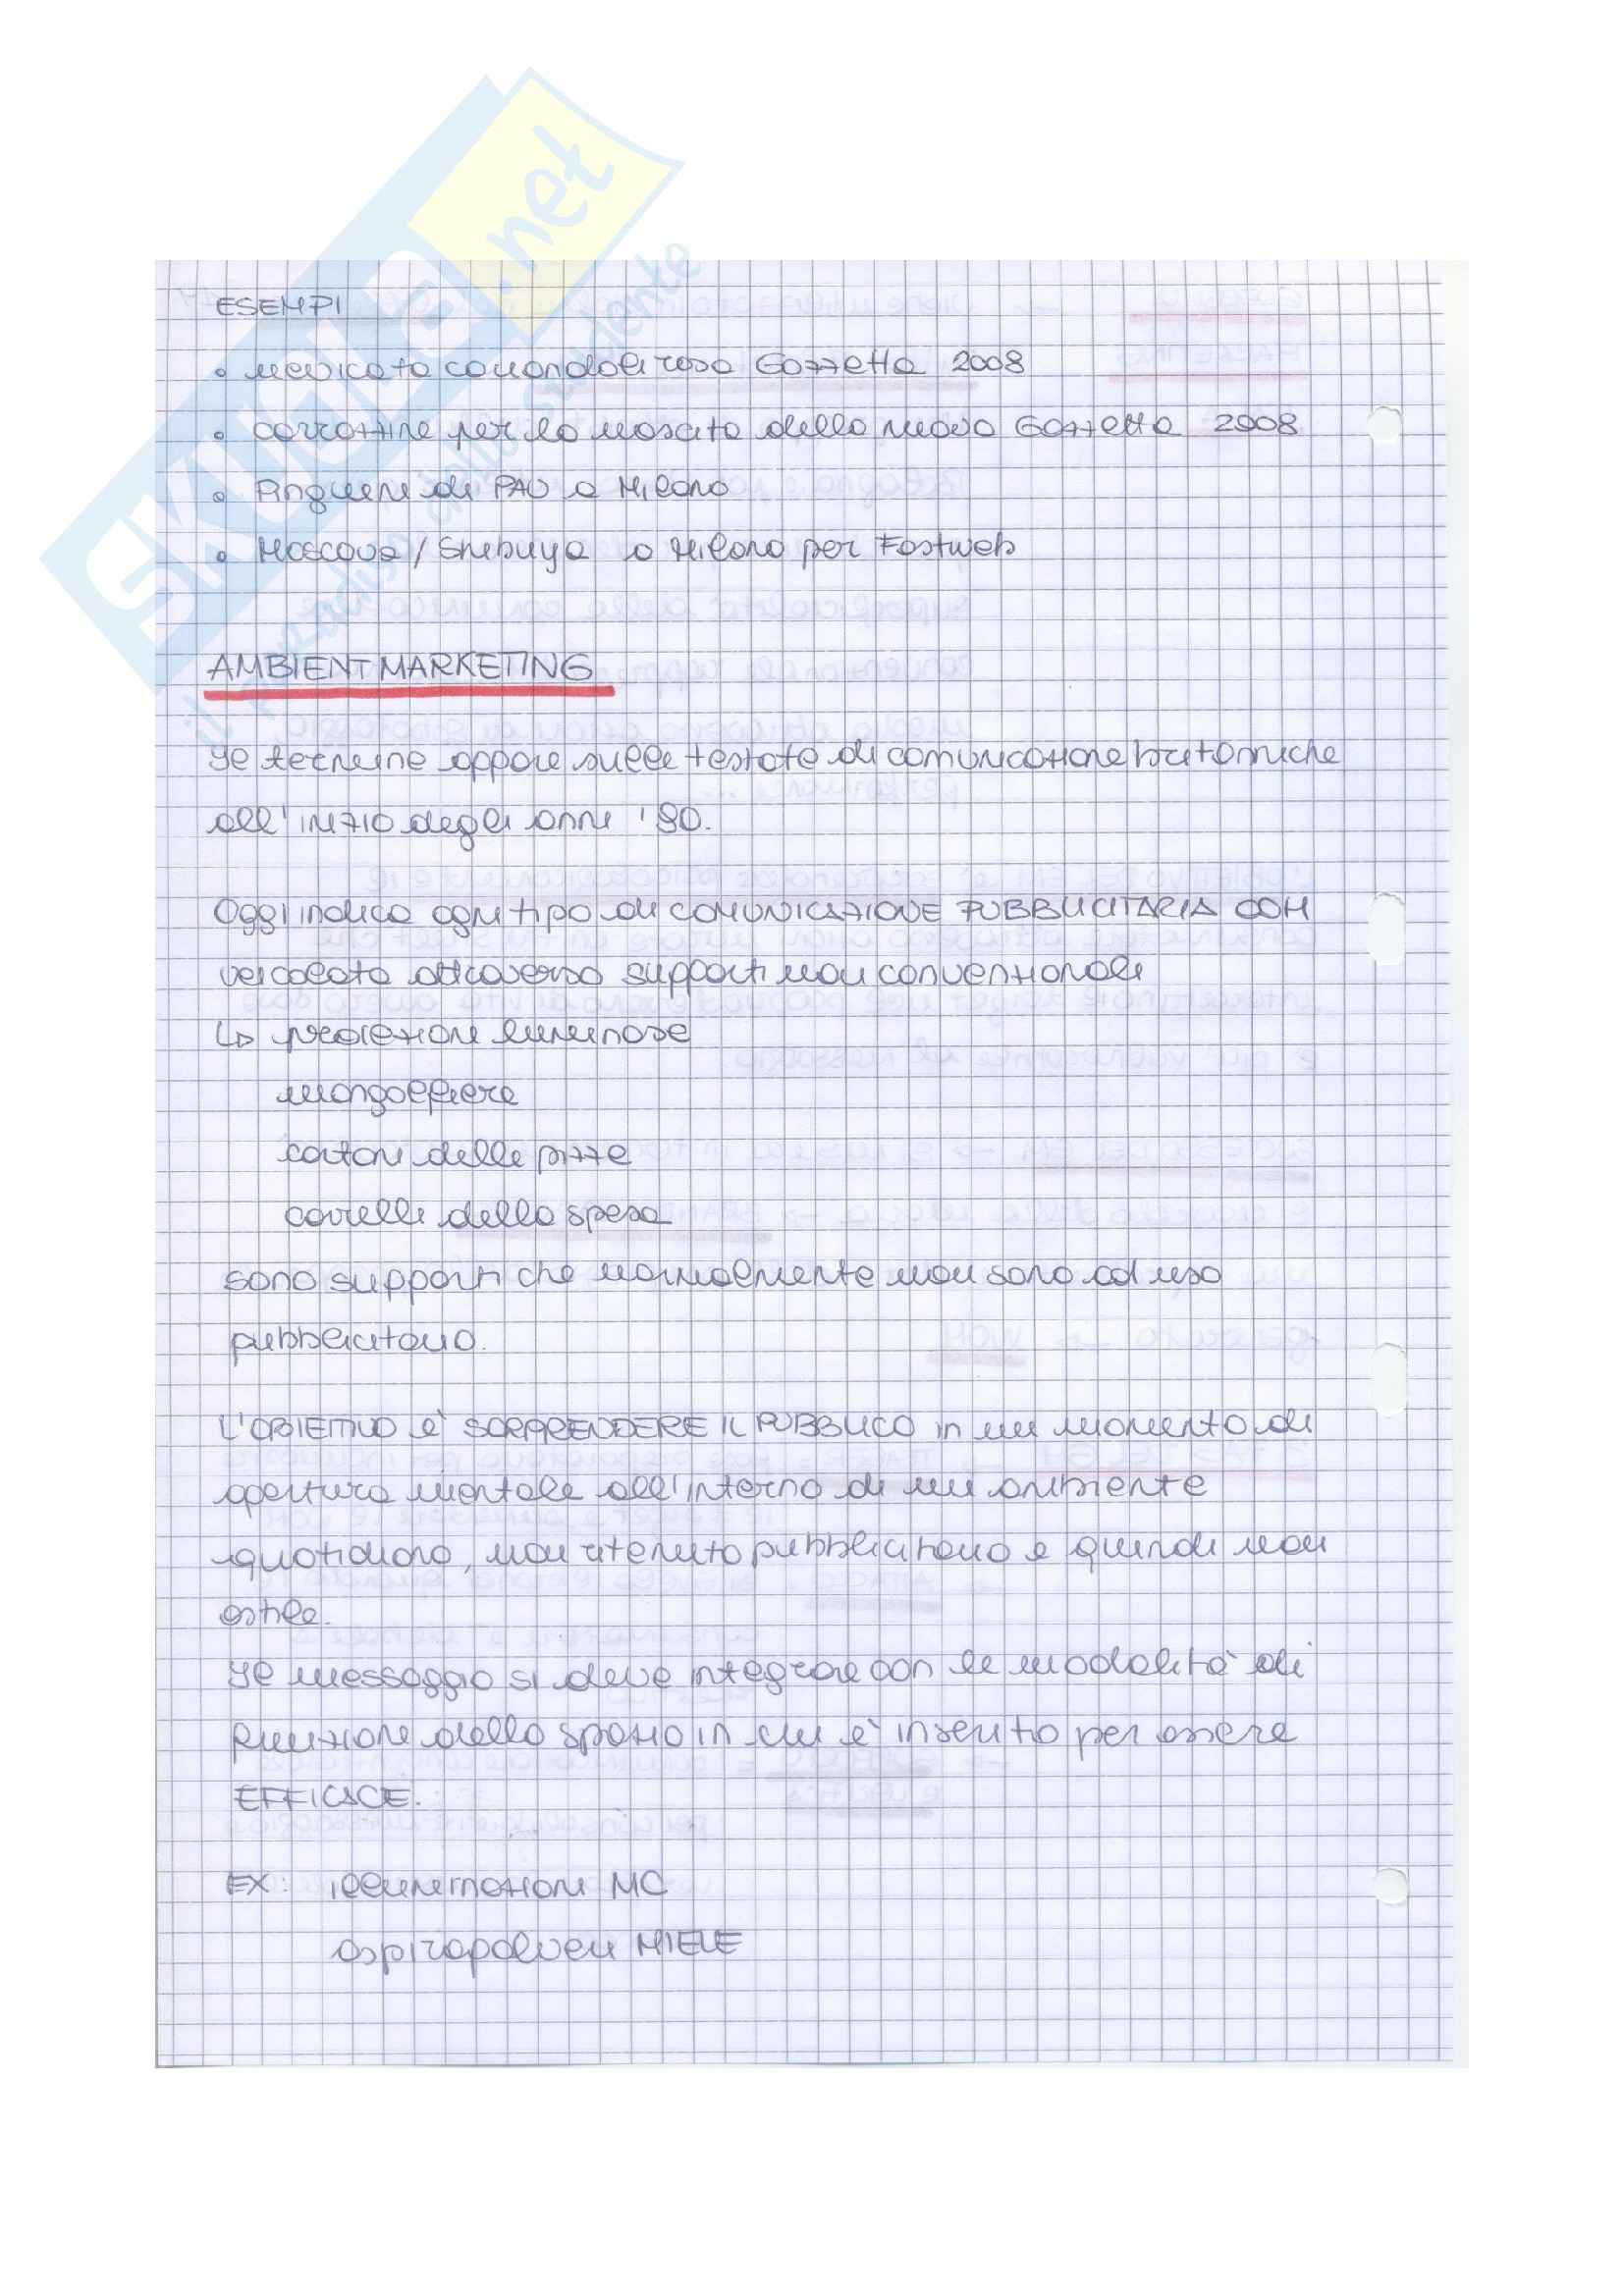 ESEMPI
• nevicata coriandoli rosa Gazzetta 2008
• carrozzine per la nascita della nuova Gazzetta 2008
• Pinguini di PAO a Milano
• Moscova / Shibuya a Milano per Fastweb
AMBIENT MARKETING
Il termine appare sulle testate di comunicazione britanniche
all'inizio degli anni '90.
Oggi indica ogni tipo di COMUNICAZIONE PUBBLICITARIA OOH
veicolata attraverso supporti non convenzionali
↳ proiezioni luminose
mongolfiere
cartoni delle pizze
carrelli della spesa
sono supporti che normalmente non sono ad uso
pubblicitario.
L'OBIETTIVO è SORPRENDERE IL PUBBLICO in un momento di
apertura mentale all'interno di un ambiente
quotidiano, non ritenuto pubblicitario e quindi non
ostile.
Il messaggio si deve integrare con le modalità di
fruizione dello spazio in cui è inserito per essere
EFFICACE.
EX: illuminazioni MC
aspirapolveri MIELE
SKUOLA.net
il paradiso dello studente